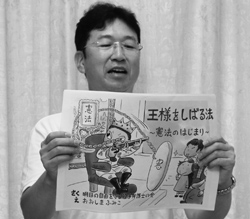 王様をしばる法
～憲法のはじまり～
憲法
さく 明日の自由を守る若手弁護士の会
え おおしまふみこ